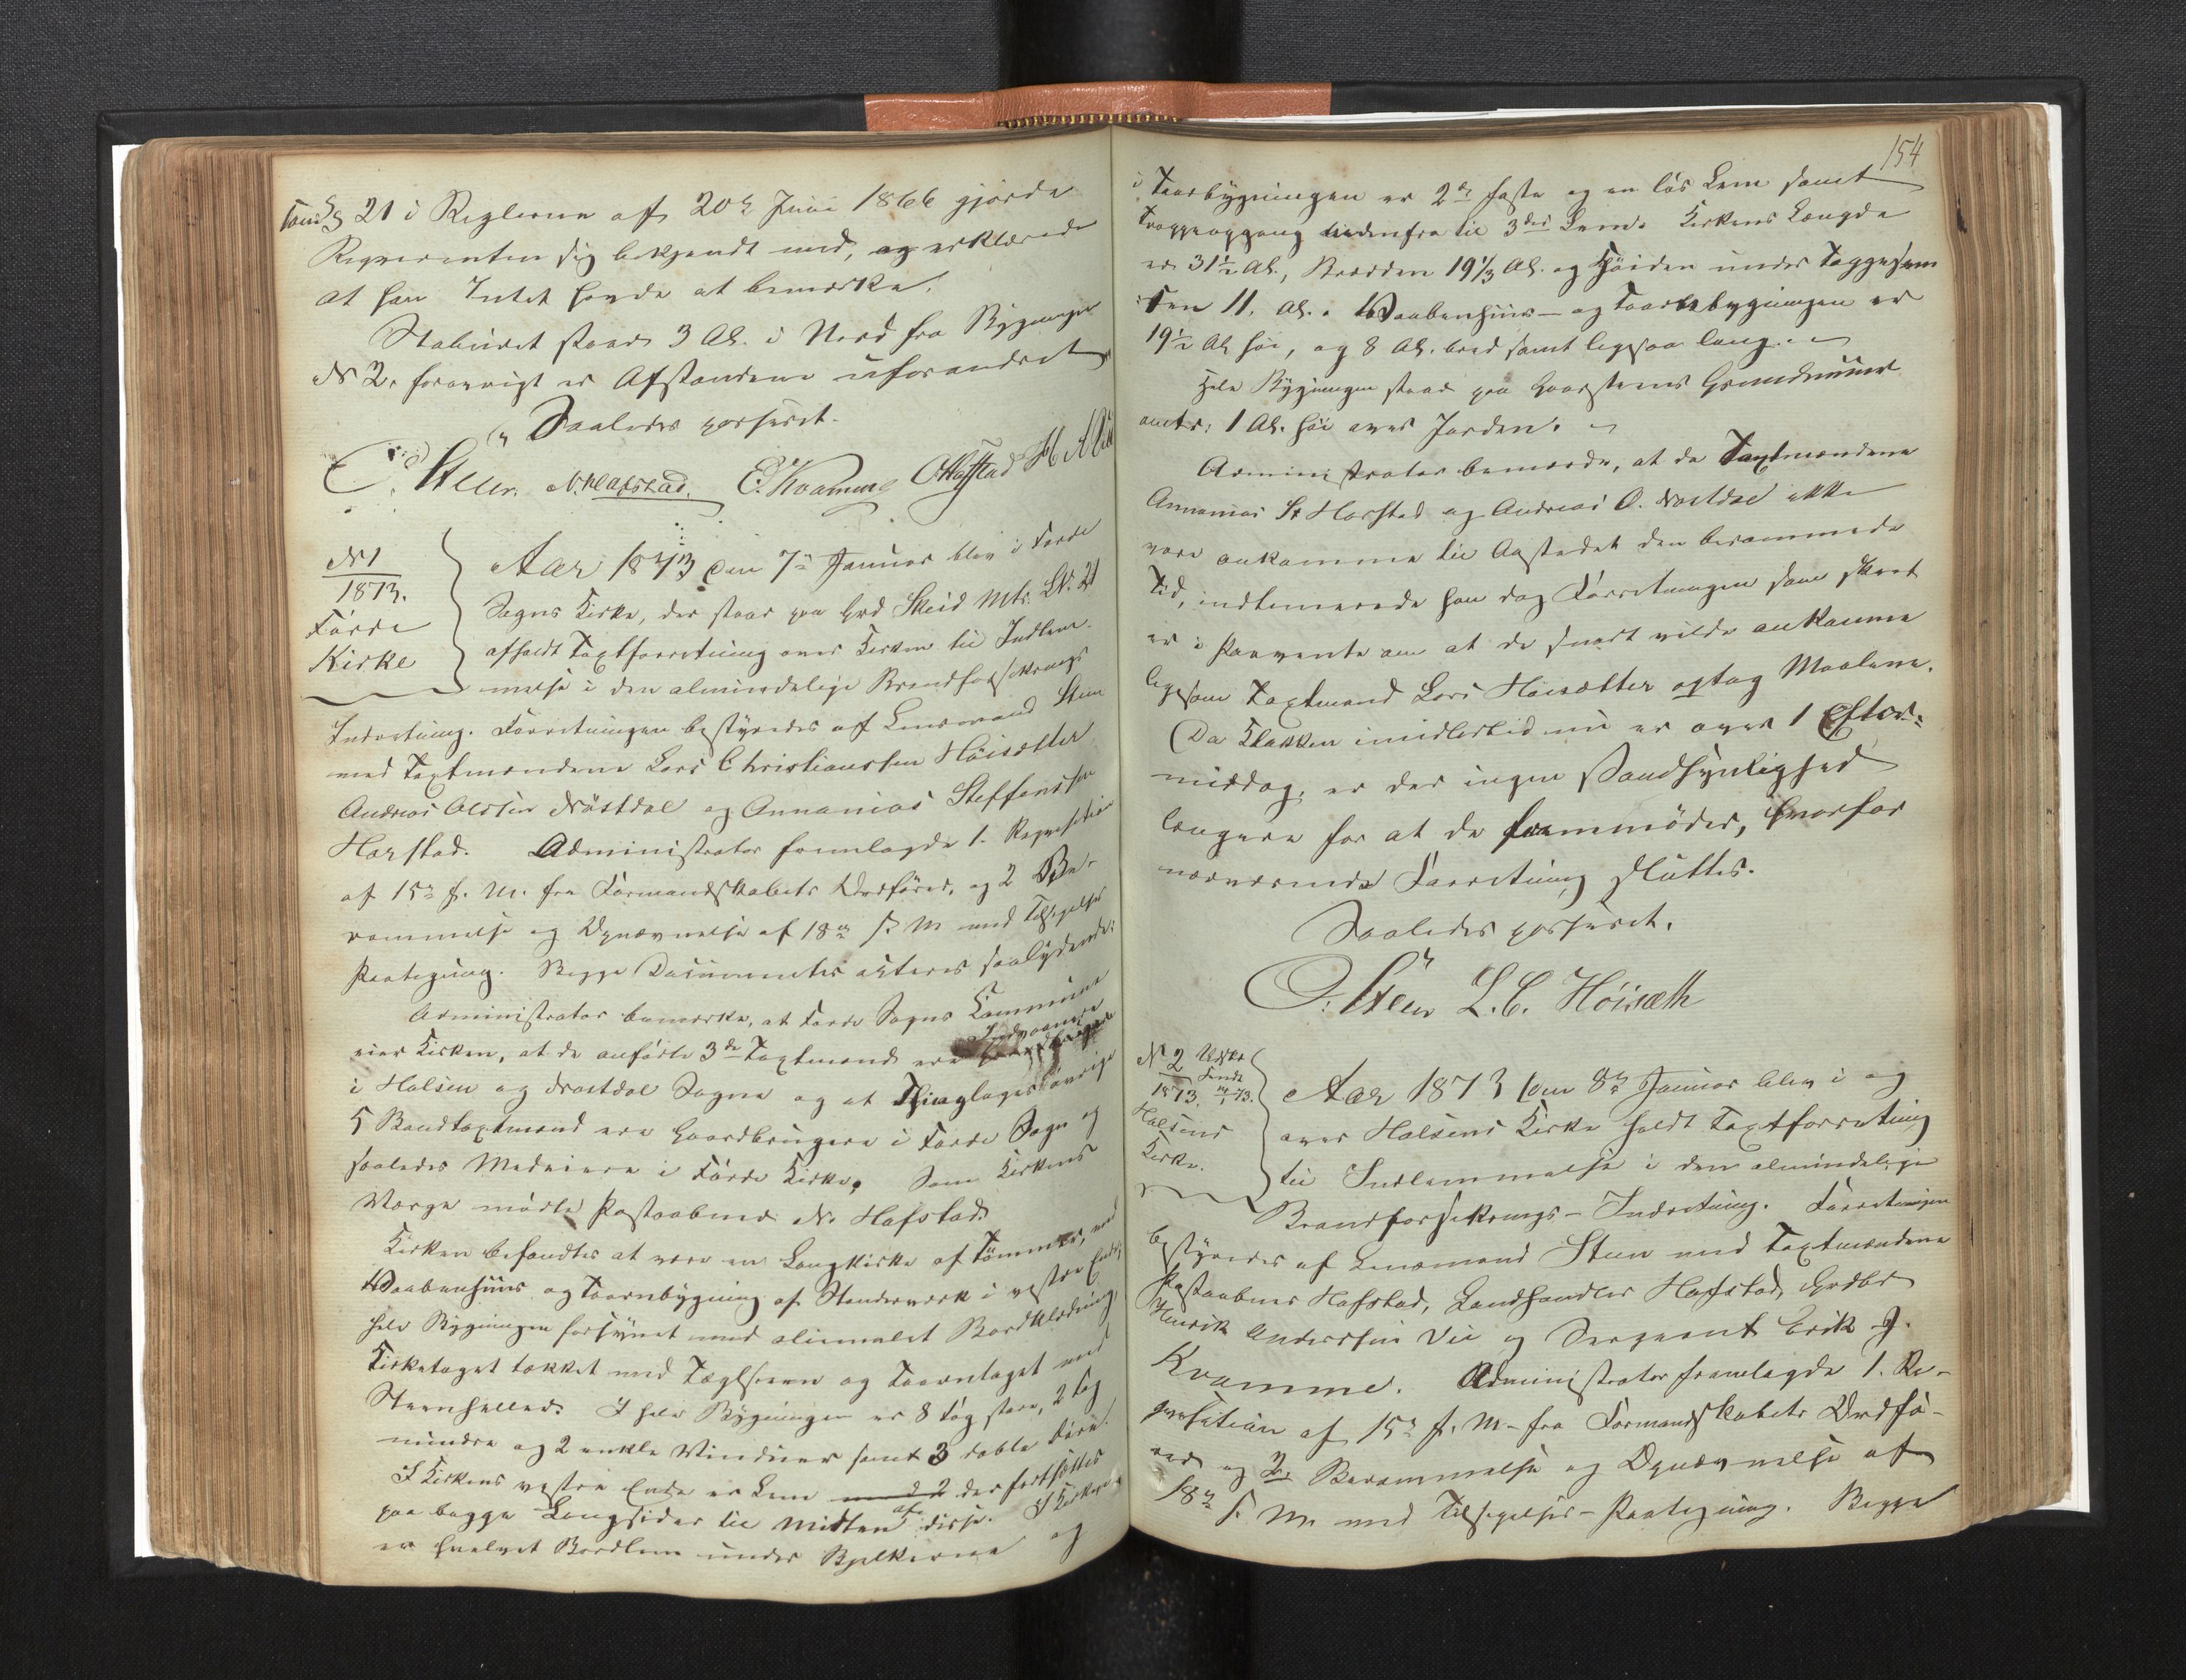 samt § 21 i Reglerne af 20de Juni 1866 gjorde
Reqvirenten sig bekjendt med, og erklærede
at han Intet havde at bemærke.
Staburet staar 3 Al. i Nord fra Bygningen
N 2, forøvrigt er Afstandene uforandret
Saaledes passeret.
C. Steen. N. Hafstad. E. Kvamme O Hafstad H A Vie
N 1
1873.
Førde
Kirke
Aar 1873 den 7de Januar blev i Førde
Sogns Kirke, der staar paa Grd Skeid Mts. LN. 21
afholdt Taxtforretning over Kirken til Indlem-
melse i den almindelige Brandforsikrings
Indretning. Forretningen bestyredes af Lensmand Steen
med Taxtmændene Lars Christiansen Høisætter
Andreas Olsen Nøstdal og Annanias Steffensen
Harstad. Administrator fremlagde 1. Reqvisition
af 15de f. M. fra Formandskabets Ordfører, og 2 Be-
rammelse og Opnævnelse af 18de f. M med Tilsigelses
Paategning. Begge Documenter acteres saalydende:
Administrator bemærke, at Førde Sogns Kommune
eier Kirken, at de anførte 3de Taxtmænd ere Indvaanere
i Holsen og Nøstdal Sogne og at Thinglagets øvrige
5 Brandtaxtmænd ere Gaardbrugere i Førde Sogn og
saaledes Medeiere i Førde Kirke. Som Kirkens
Værge mødte Postaabner N. Hafstad.
Kirken befandtes at være en Langkirke af Tømmer, med
Vaabenhuus og Taarnbygning af Stenderværk i vestre Ende,
hele Bygningen forsynet med oliemalet Bordklædning
Kirketaget tækket med Taglsteen og Taarntaget med
Steenheller. I hele Bygningen er 8 fag store, 2 fag
mindre og 2 enkle Vinduer samt 3 doble Døre.
I Kirkens vestre Ende er Lem med 2 der fortsættes
paa begge Langsider til Midten af disse. I Kirken
er hvelvet Bordlem under Bjelkerne og
154
i Taarnbygningen er 2de faste og en løs Lem samt
Trappeopgang nedenfra til 3die Lem. Kirkens Længde
er 31½ Al., Bredden 19⅓ Al. og Høiden under Taggesem
sen 11. Al. Vaabenhuus- og Taarnbygningen er
19½ Al høi, og 8 Al. bred samt ligesaa lang.
Hele Bygningen staar paa Graastens Grundmuur
omtr. 1 Al. høi over Jorden.
Administrator bemærke, at da Taxtmændene
Annanias St Harstad og Andreas O. Nøstdal ikke
vare ankomne til Aastedet den berammede
Tid, indtimerede han dog Forretningen som skeet
er i Paavente om at de snart vilde ankomme
ligesom Taxtmand Lars Høisætter optog Maalene.
Da Klokken imidlertid nu er over 1 Efter-
middag, er der ingen Sandsynlighed
længere for at de fremmøder, hvorfor
nærværende Forretning sluttes.
Saaledes passeret.
C. Steen L. C. Høisæth
N 2
1873.
Holsens
Kirke.
Aar 1873 den 8de Januar blev i og
over Holsens Kirke holdt Taxtforretning
til Indlemmelse i den almindelige
Brandforsikrings-Indretning. Forretningen
bestyredes af Lensmand Steen med Taxtmændene
Postaabner Hafstad, Landhandler Hafstad, Grdbr
Henrik Anderssen Vie og Sergeant Erik J.
Kvamme. Administrator fremlagde 1. Re-
qvisition af 15de f. M. fra Formandskabets Ordfø-
rer og 2. Berammelse og Opnævnelse af
18de f. M. med Tilsigelses-Paategning. Begge